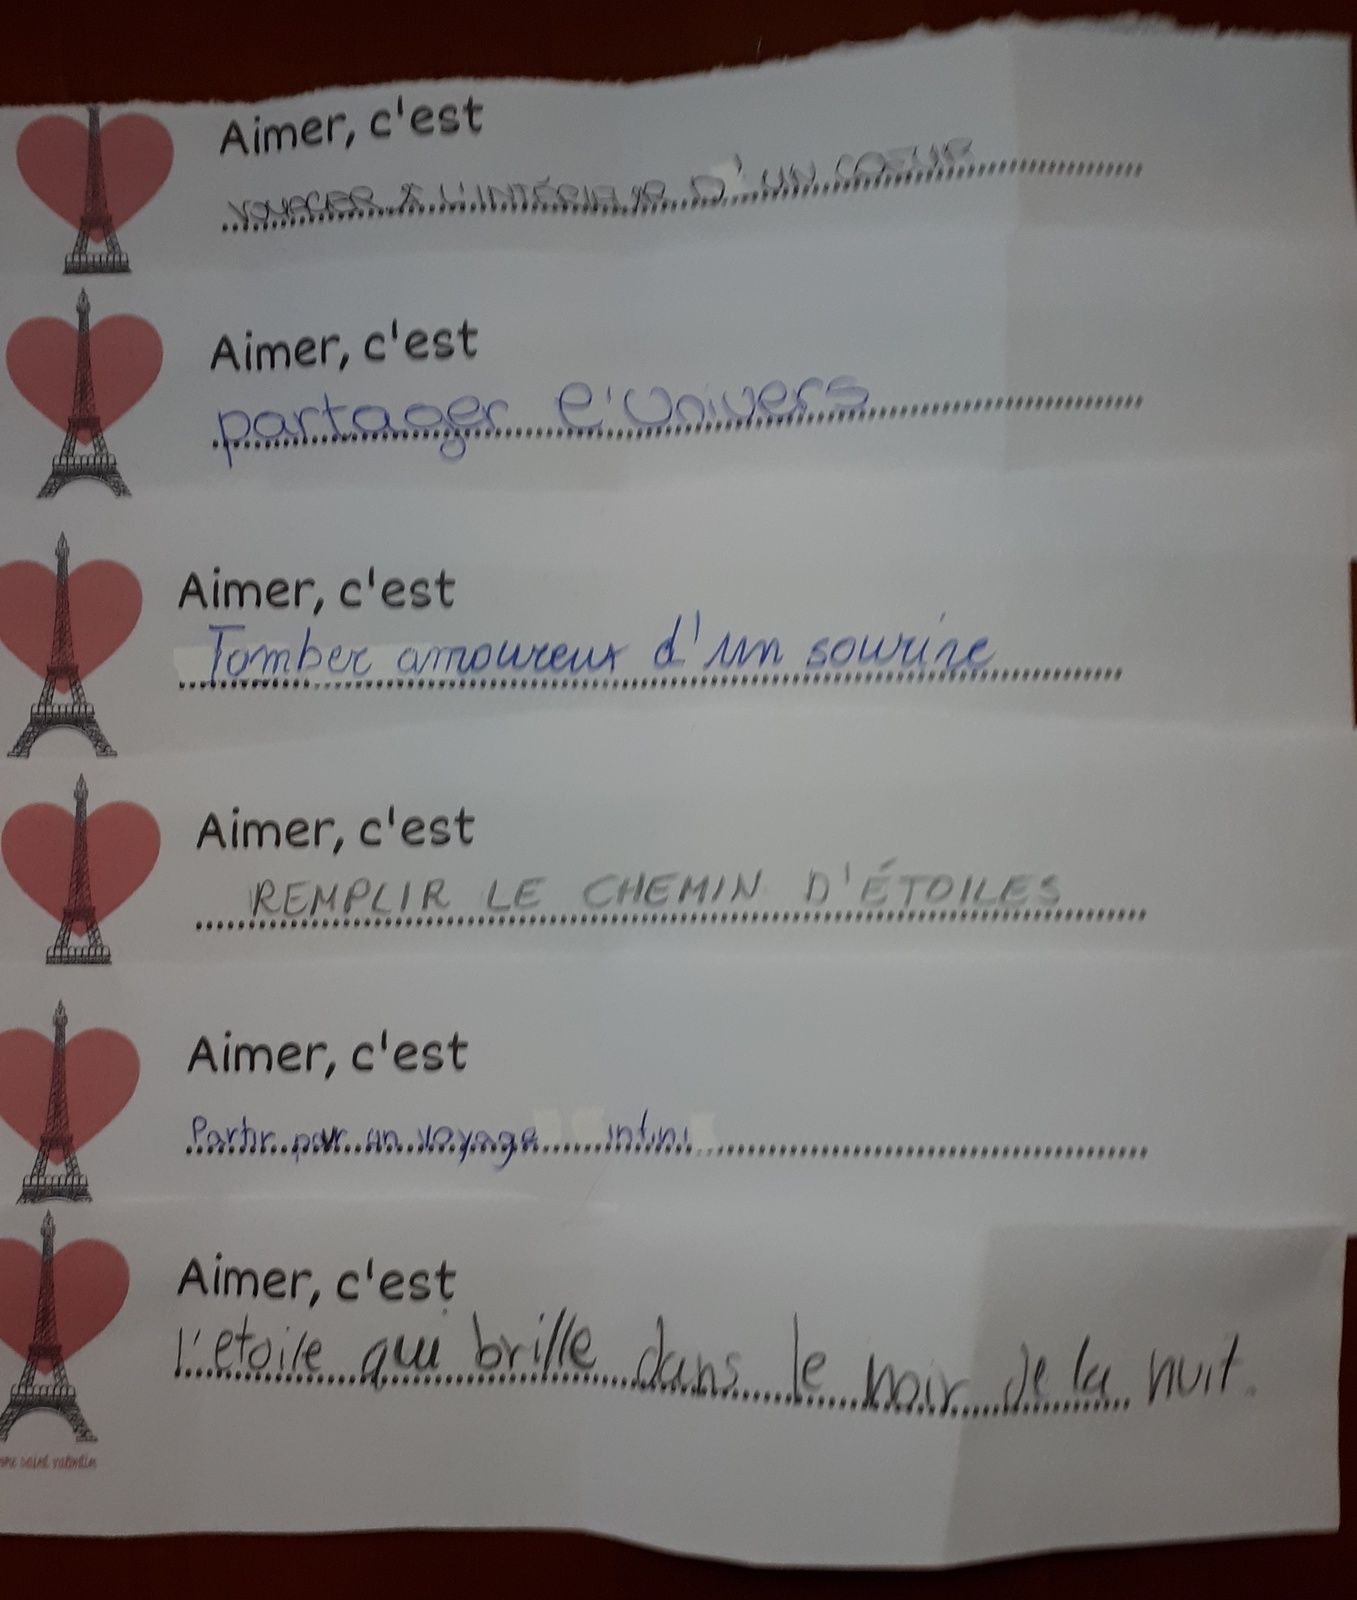 Aimer, c'est
VOYAGER À L'INTÉRIEUR D'UN COEUR
Aimer, c'est
partager l'Univers
Aimer, c'est
Tomber amoureux d'un sourire
Aimer, c'est
REMPLIR LE CHEMIN D'ÉTOILES
Aimer, c'est
Partir par un voyage infini
Aimer, c'est
l'etoile qui brille dans le noir de la nuit.
saint valentin